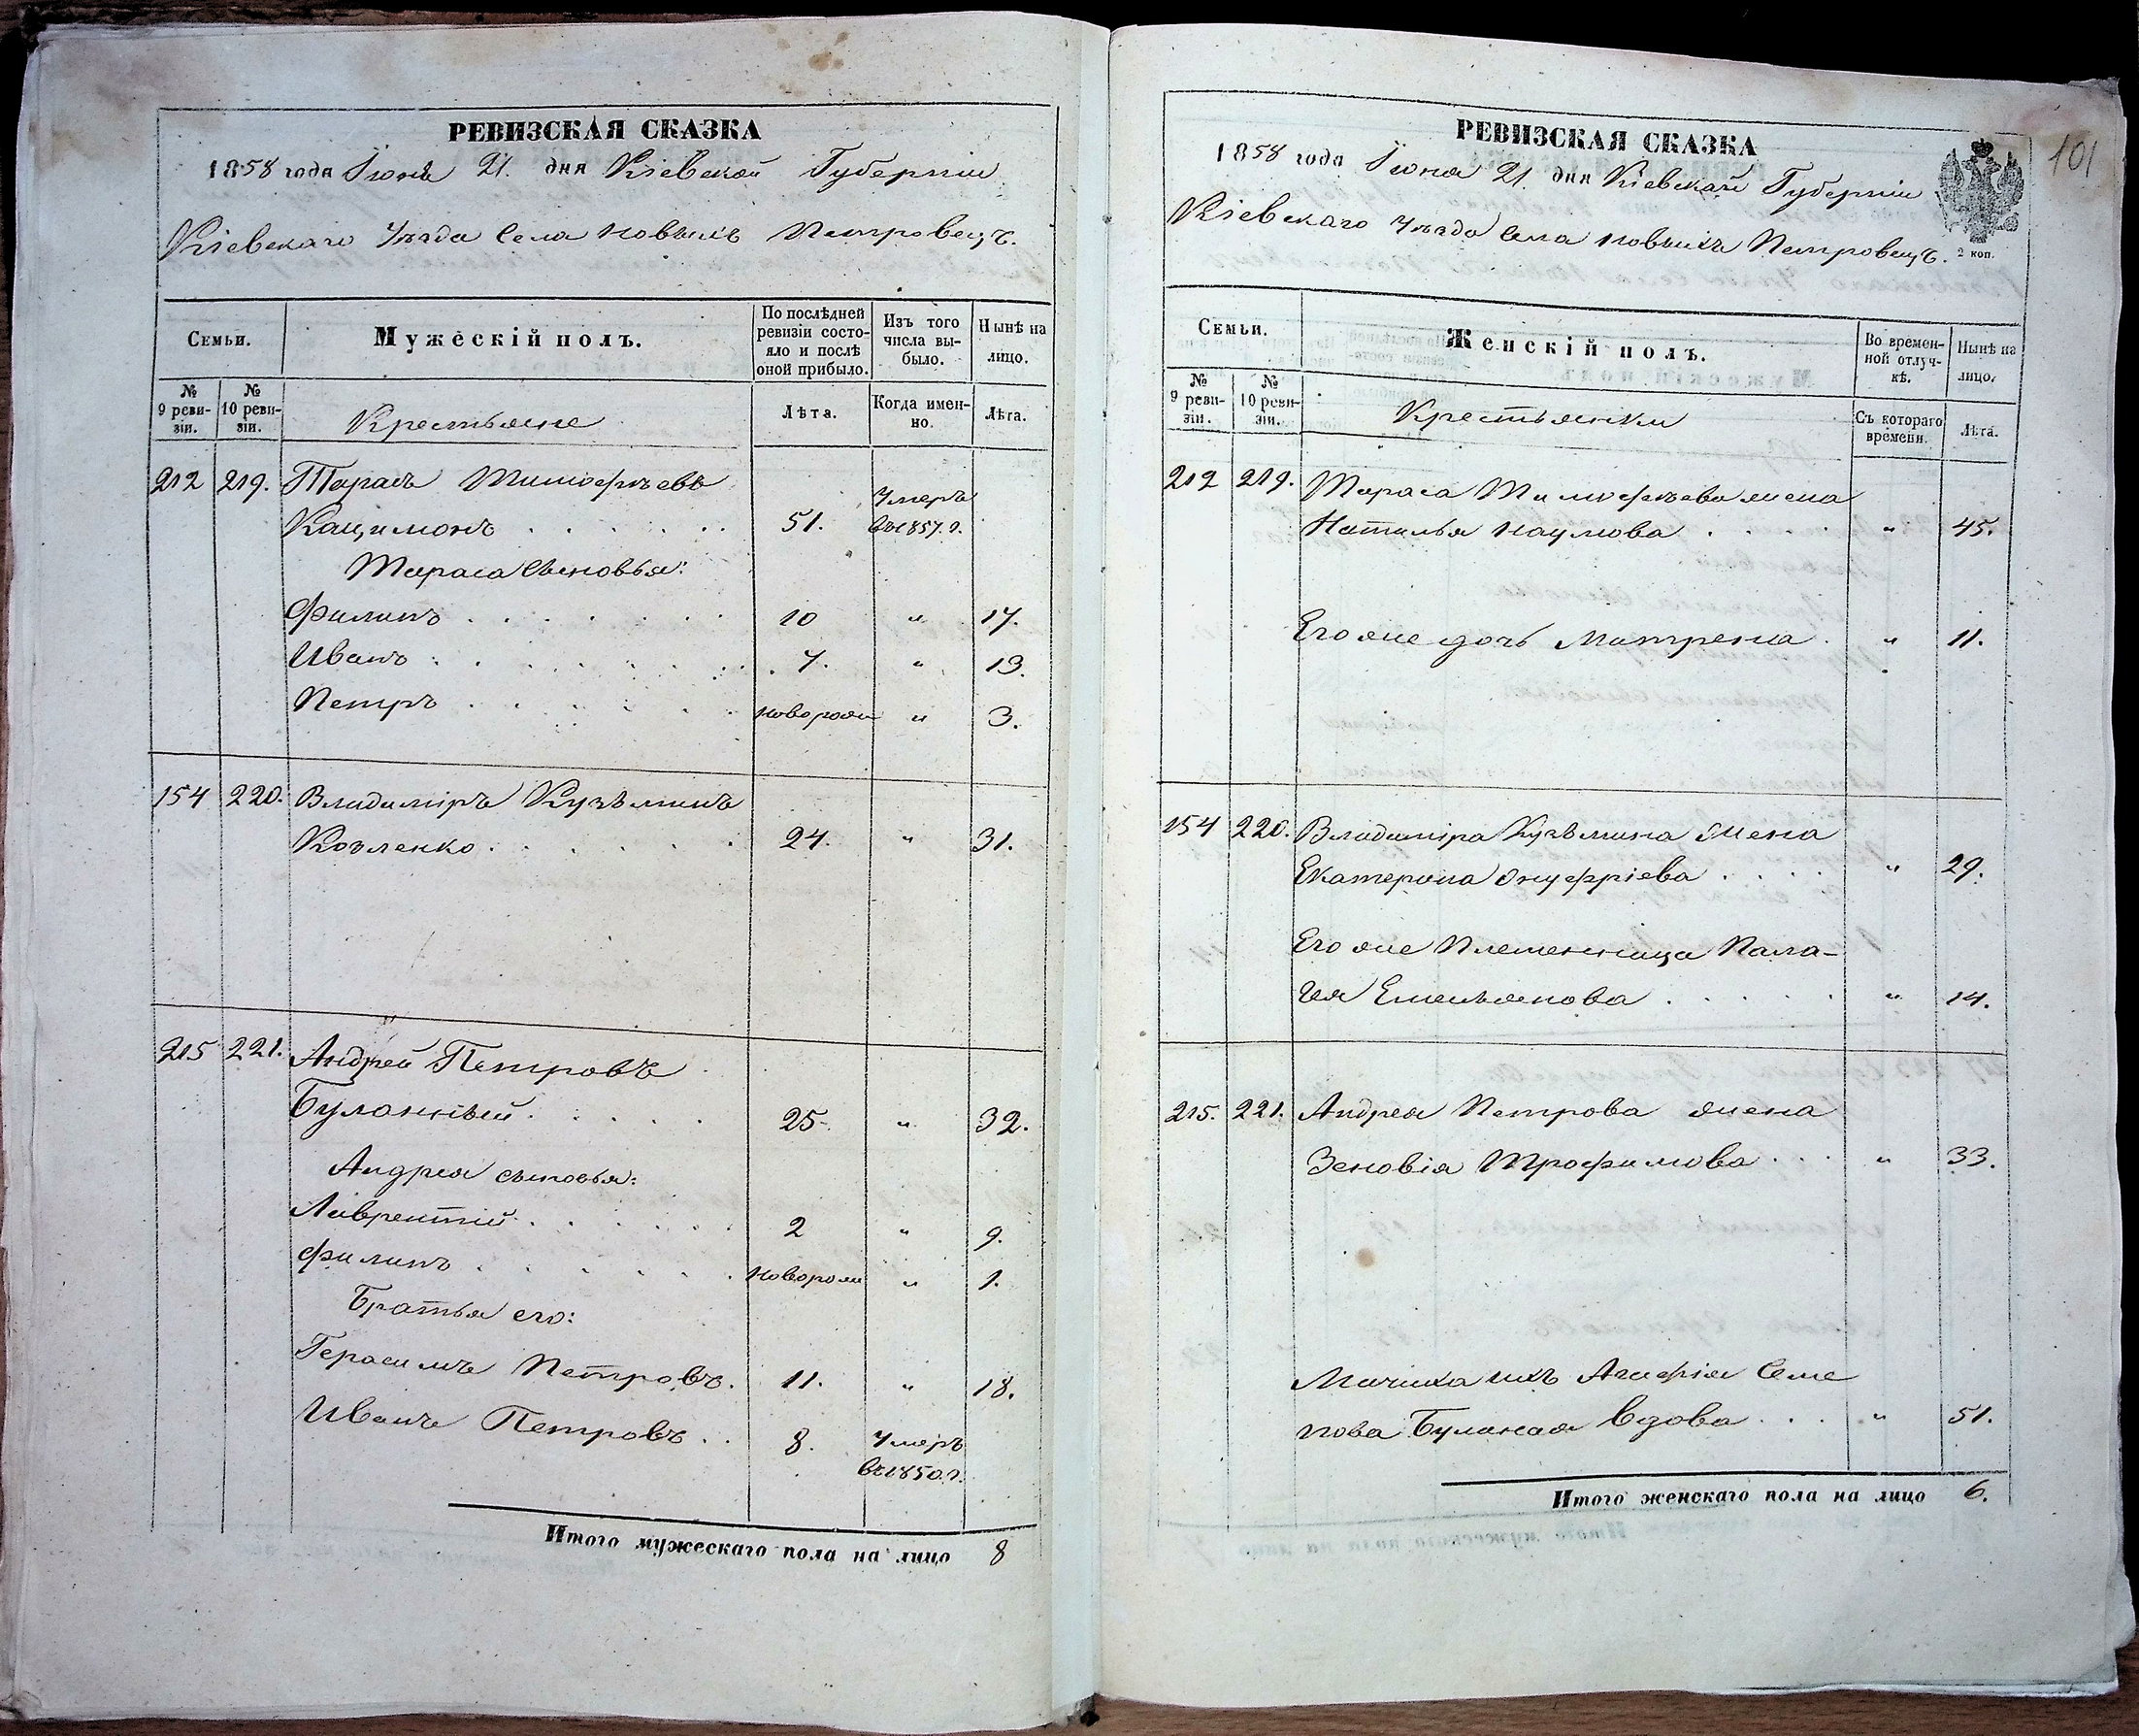 РЕВИЗСКАЯ СКАЗКА
1858 года Іюня 21. дня Кіевской Губерніи
Кіевскаго Уѣзда Села Новыхъ Петровецъ.
Семьи.
Мужескій полъ.
По послѣдней ревизіи состо-
яло и послѣ оной прибыло.
Изъ того числа вы-
было.
Нынѣ на лицо.
№ 9 реви-
зіи.
№ 10 реви-
зіи.
Крестьяне
Лѣта.
Когда имен-
но.
Лѣта.
212 219. Тарасъ Тимофѣевъ
Кацимонъ 51. Умеръ въ 1857. г.
Тараса сыновья:
Филипъ 10 " 17.
Иванъ 7. " 13.
Петръ новорож " 3.
154 220. Владиміръ Кузьминъ
Козленко 24. " 31.
215 221. Андрей Петровъ
Буланный 25. " 32.
Андрея сыновья:
Лаврентій 2 " 9.
Филипъ новорож " 1.
Братья его:
Герасимъ Петровъ. 11. " 18.
Иванъ Петровъ 8. Умеръ въ 1850. г.
Итого мужескаго пола на лицо 8
РЕВИЗСКАЯ СКАЗКА
101
1858 года Іюня 21. дня Кіевской Губерніи
Кіевскаго Уѣзда Села Новыхъ Петровецъ.
2 коп.
Семьи.
Женскій полъ.
Во времен-
ной отлуч-
кѣ.
Нынѣ на лицо.
№ 9 реви-
зіи.
№ 10 реви-
зіи.
Крестьянки
Съ котораго времени.
Лѣта.
212 219. Тараса Тимофѣева жена
Наталья Наумова " 45.
Его же дочь Матрена " 11.
154 220. Владиміра Кузьмина жена
Екатерина Онуфріева " 29.
Его же Племенница Пала-
гея Емельянова " 14.
215. 221. Андрея Петрова жена
Зеновія Трофимова " 33.
Мачиха ихъ Агафія Семе
нова Буланая Вдова " 51.
Итого женскаго пола на лицо 6.